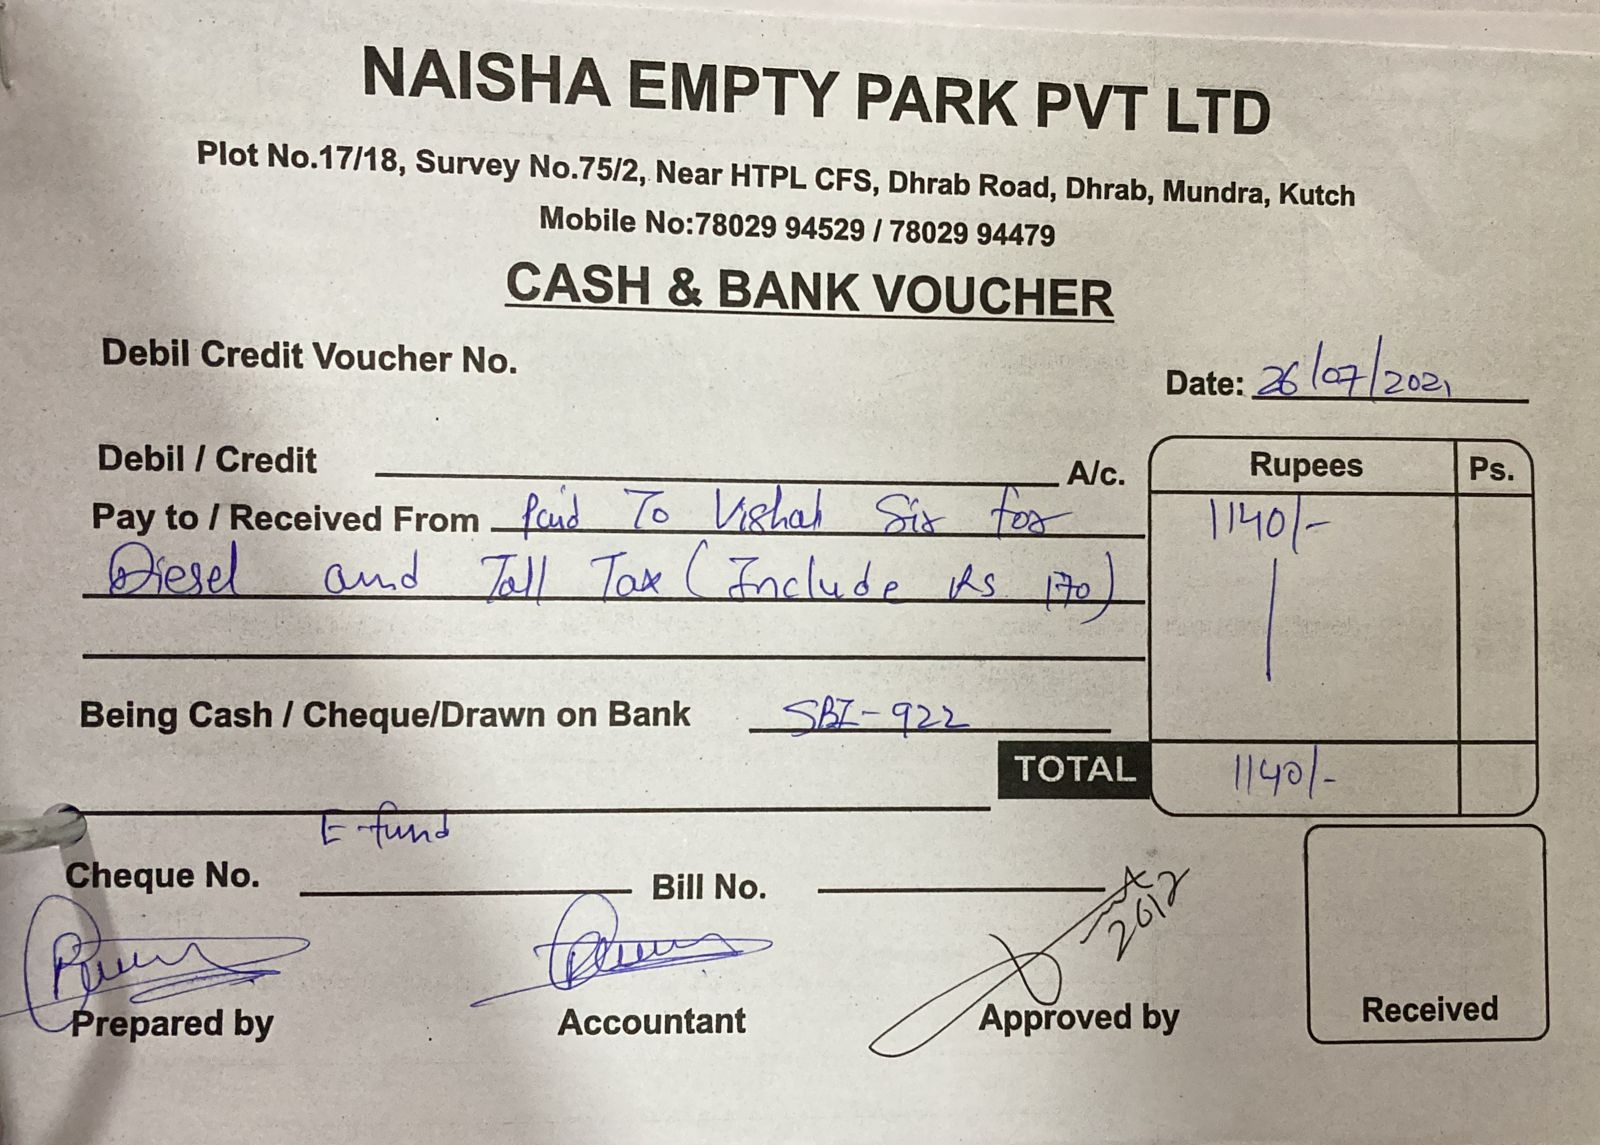 NAISHA EMPTY PARK PVT LTD
Plot No.17/18, Survey No.75/2, Near HTPL CFS, Dhrab Road, Dhrab, Mundra, Kutch
Mobile No:78029 94529 / 78029 94479
CASH & BANK VOUCHER
Debil Credit Voucher No.
Date: 26/07/2021
Debil / Credit A/c.
Rupees Ps.
Pay to / Received From Paid To Vishal Sir for 1140/-
Diesel and Toll Tax (Include Rs 170)
Being Cash / Cheque/Drawn on Bank SBI-922
TOTAL 1140/-
E-fund
Cheque No. Bill No.
Prepared by Accountant Approved by Received